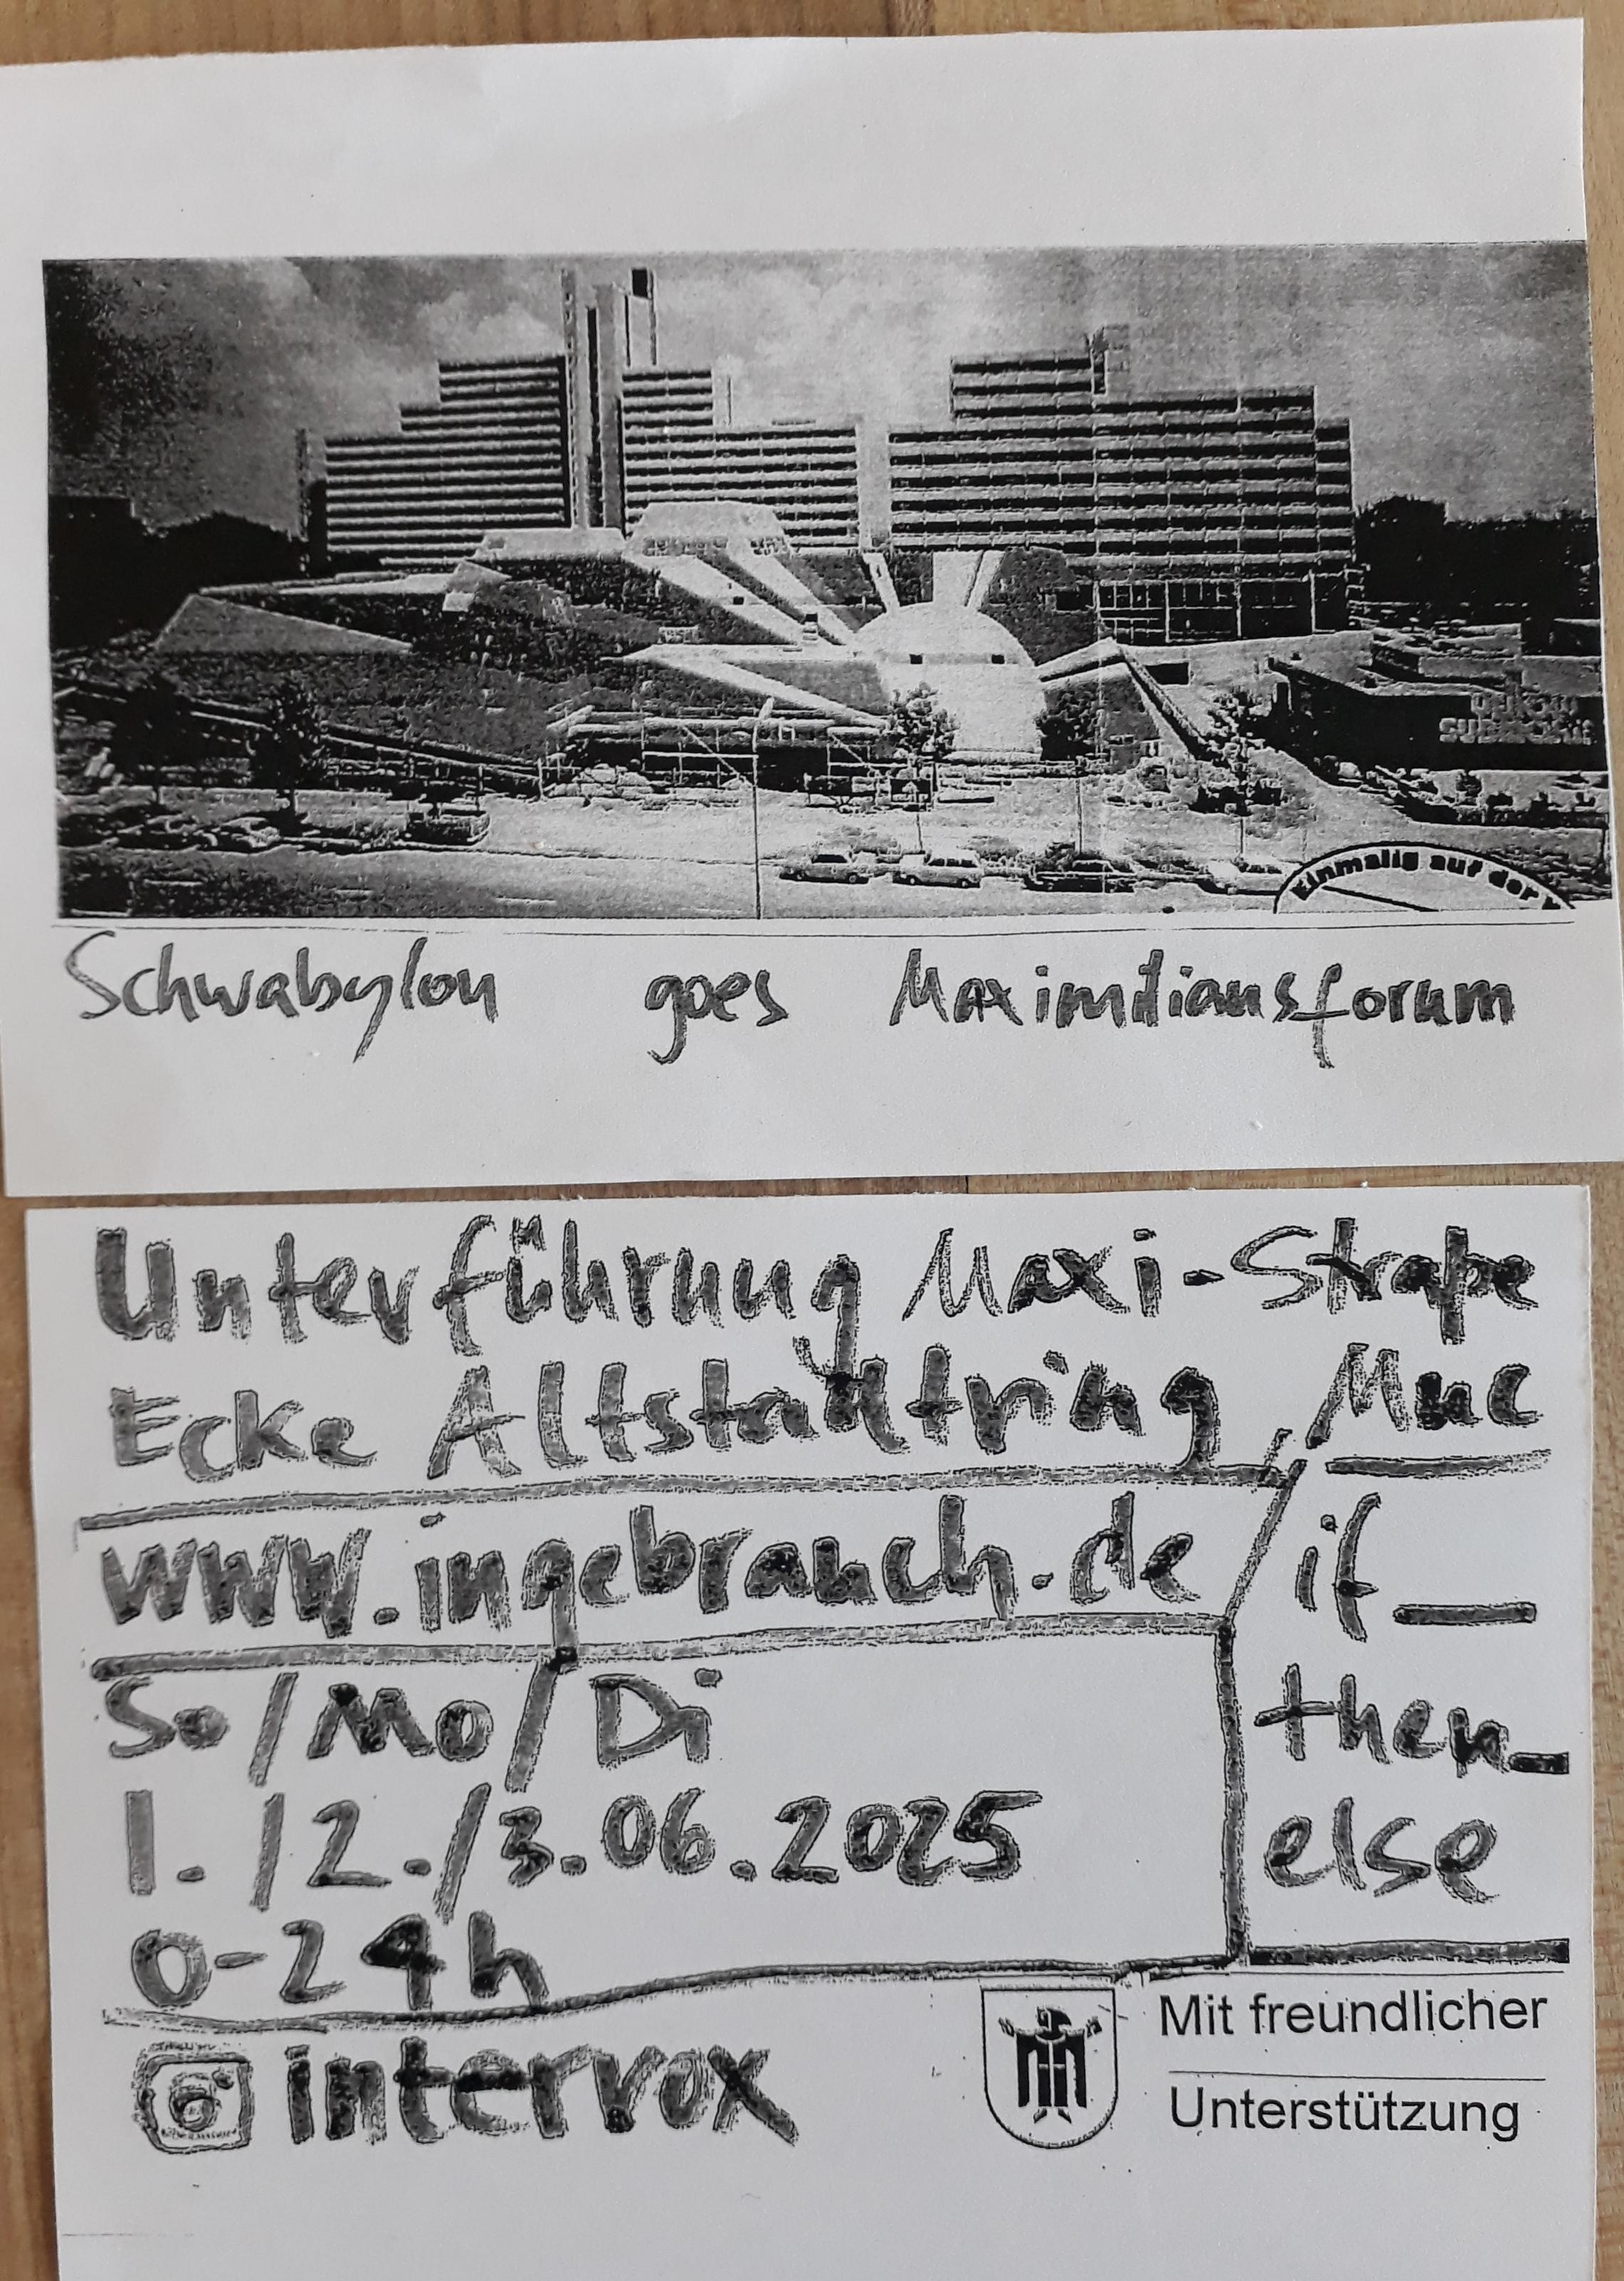 Einmalig auf der
Schwabylon goes Maximiliansforum
Unterführung Maxi-Straße
Ecke Altstadtring, Muc
www.ingebrauch.de
if_
So/Mo/Di
then_
1./2./3.06.2025
else
0-24h
intervox
Mit freundlicher
Unterstützung